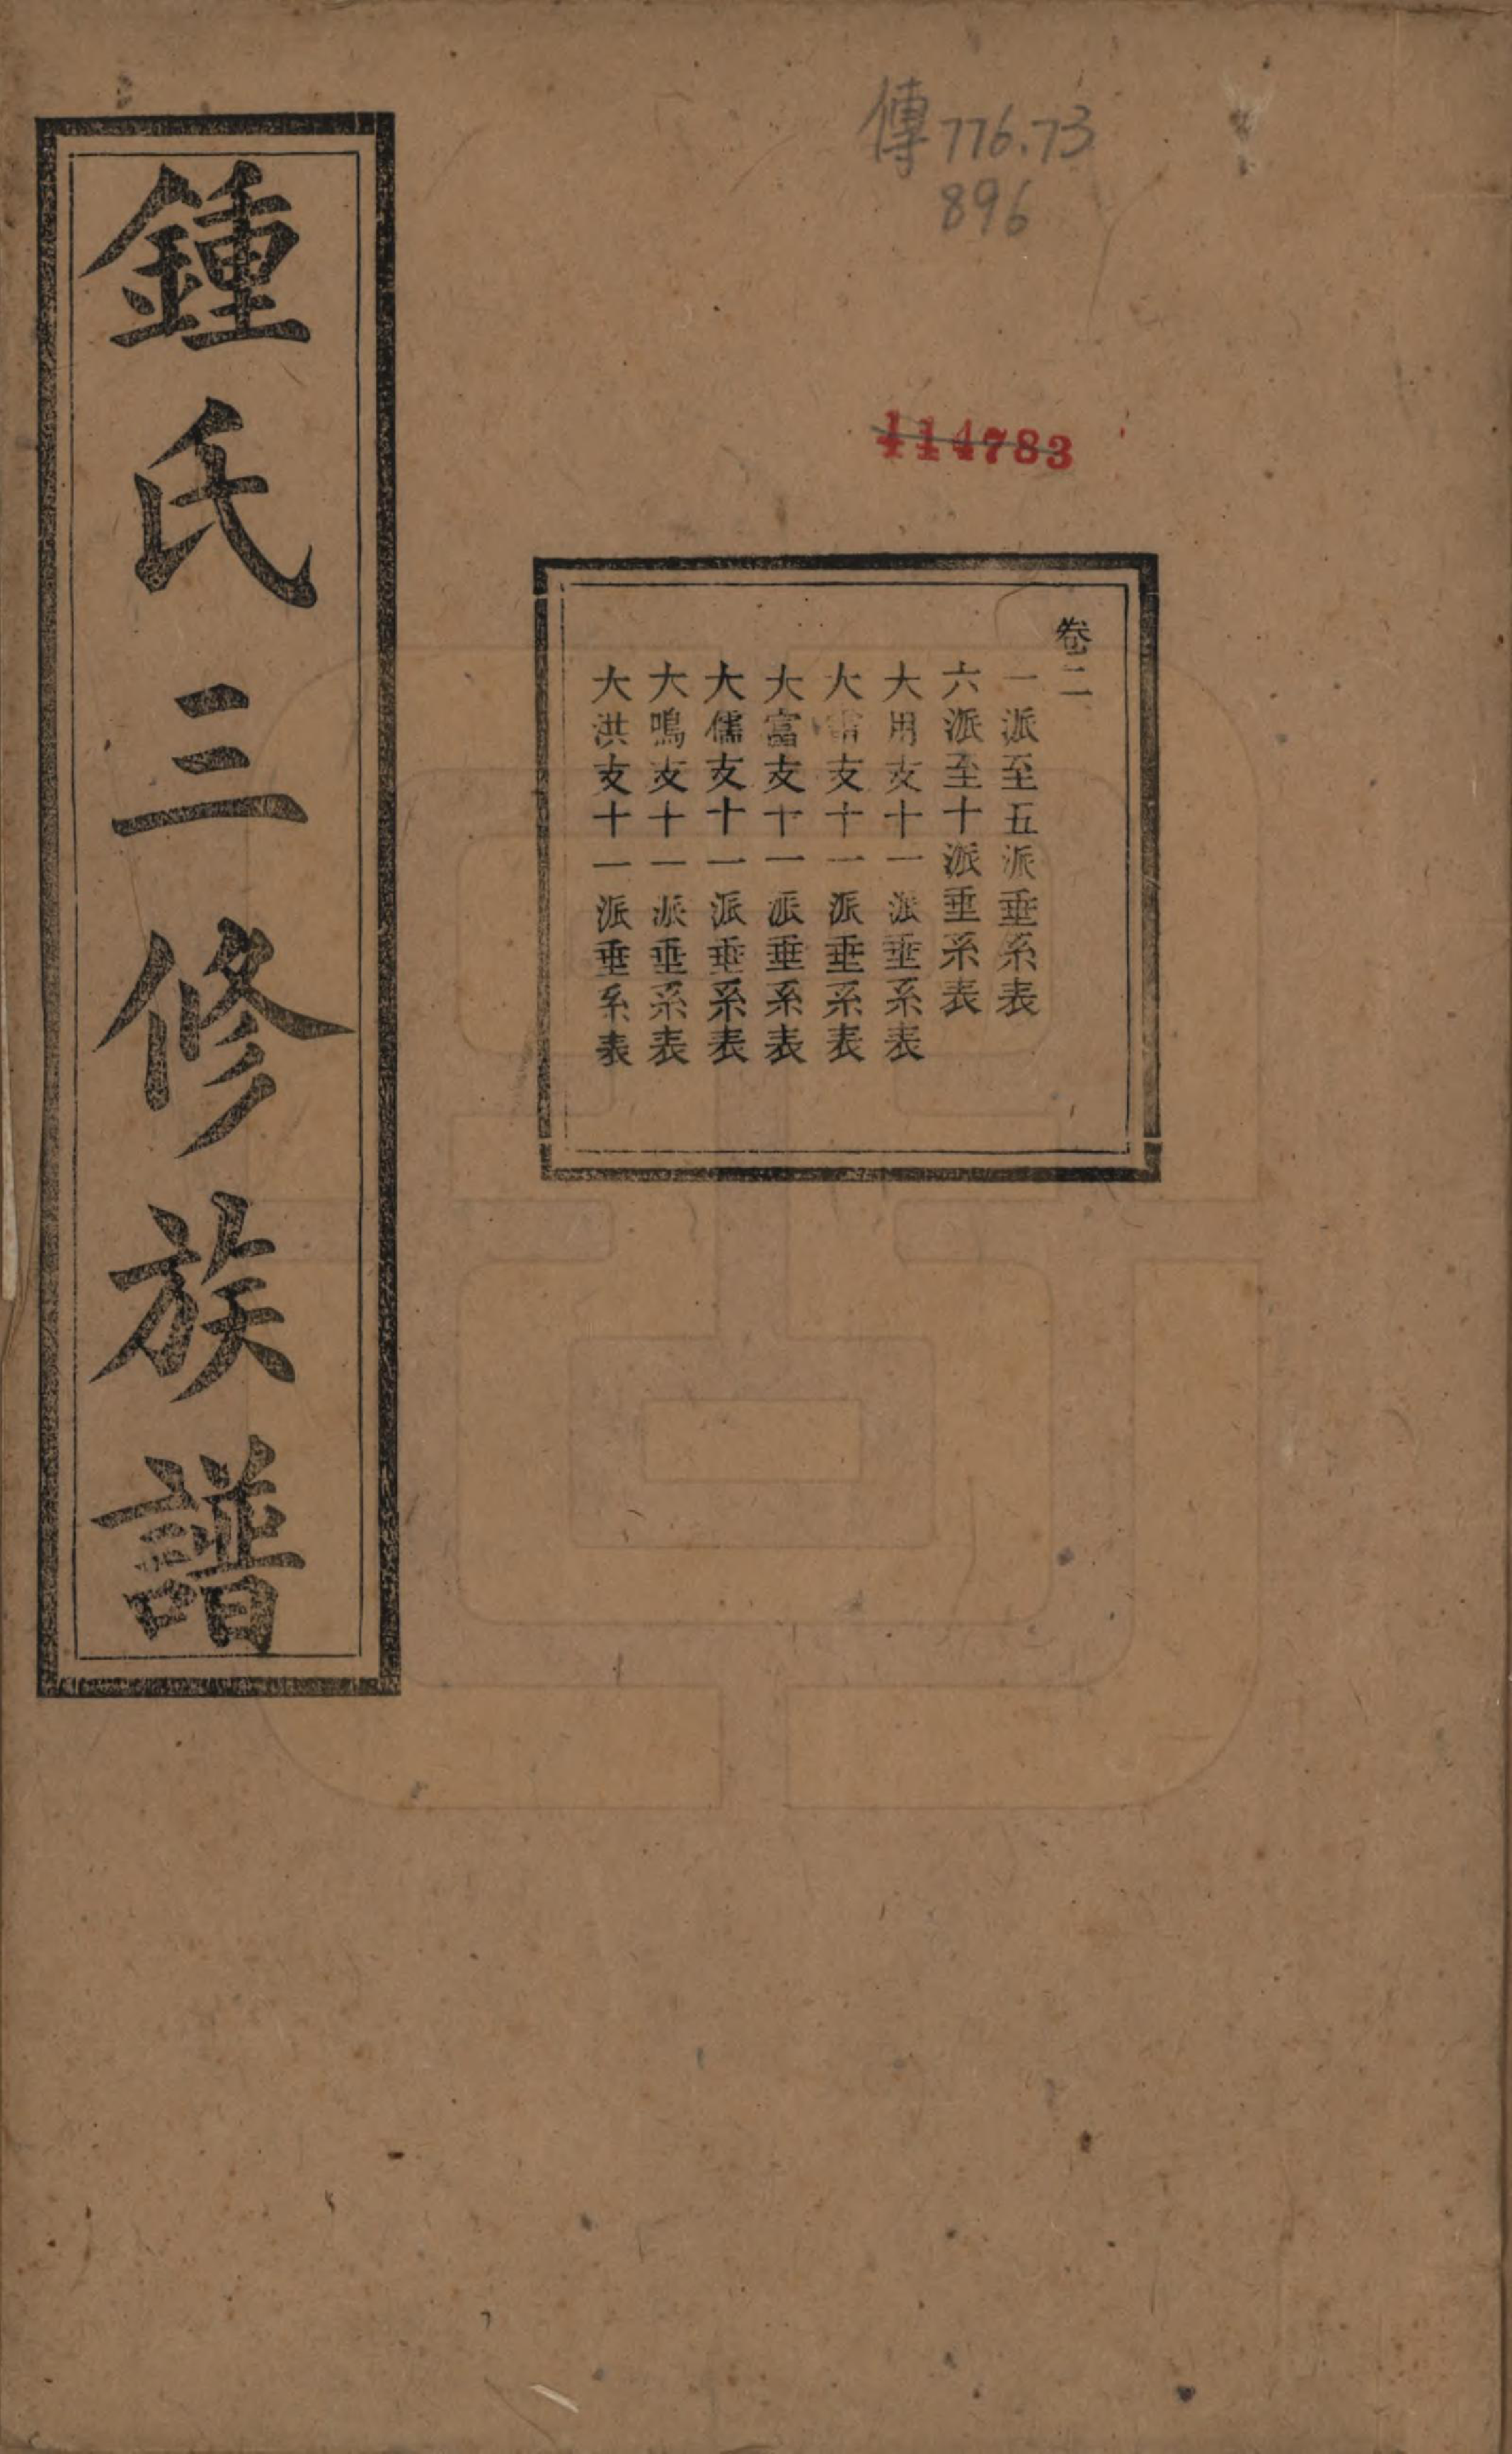 傳776.73
896
114783
卷二
一派至五派垂系表
六派至十派垂系表
大用支十一派垂系表
大支十一派垂系表
大富支十一派垂系表
大儒支十一派垂系表
大鳴支十一派垂系表
大洪支十一派垂系表
鍾氏三修族譜